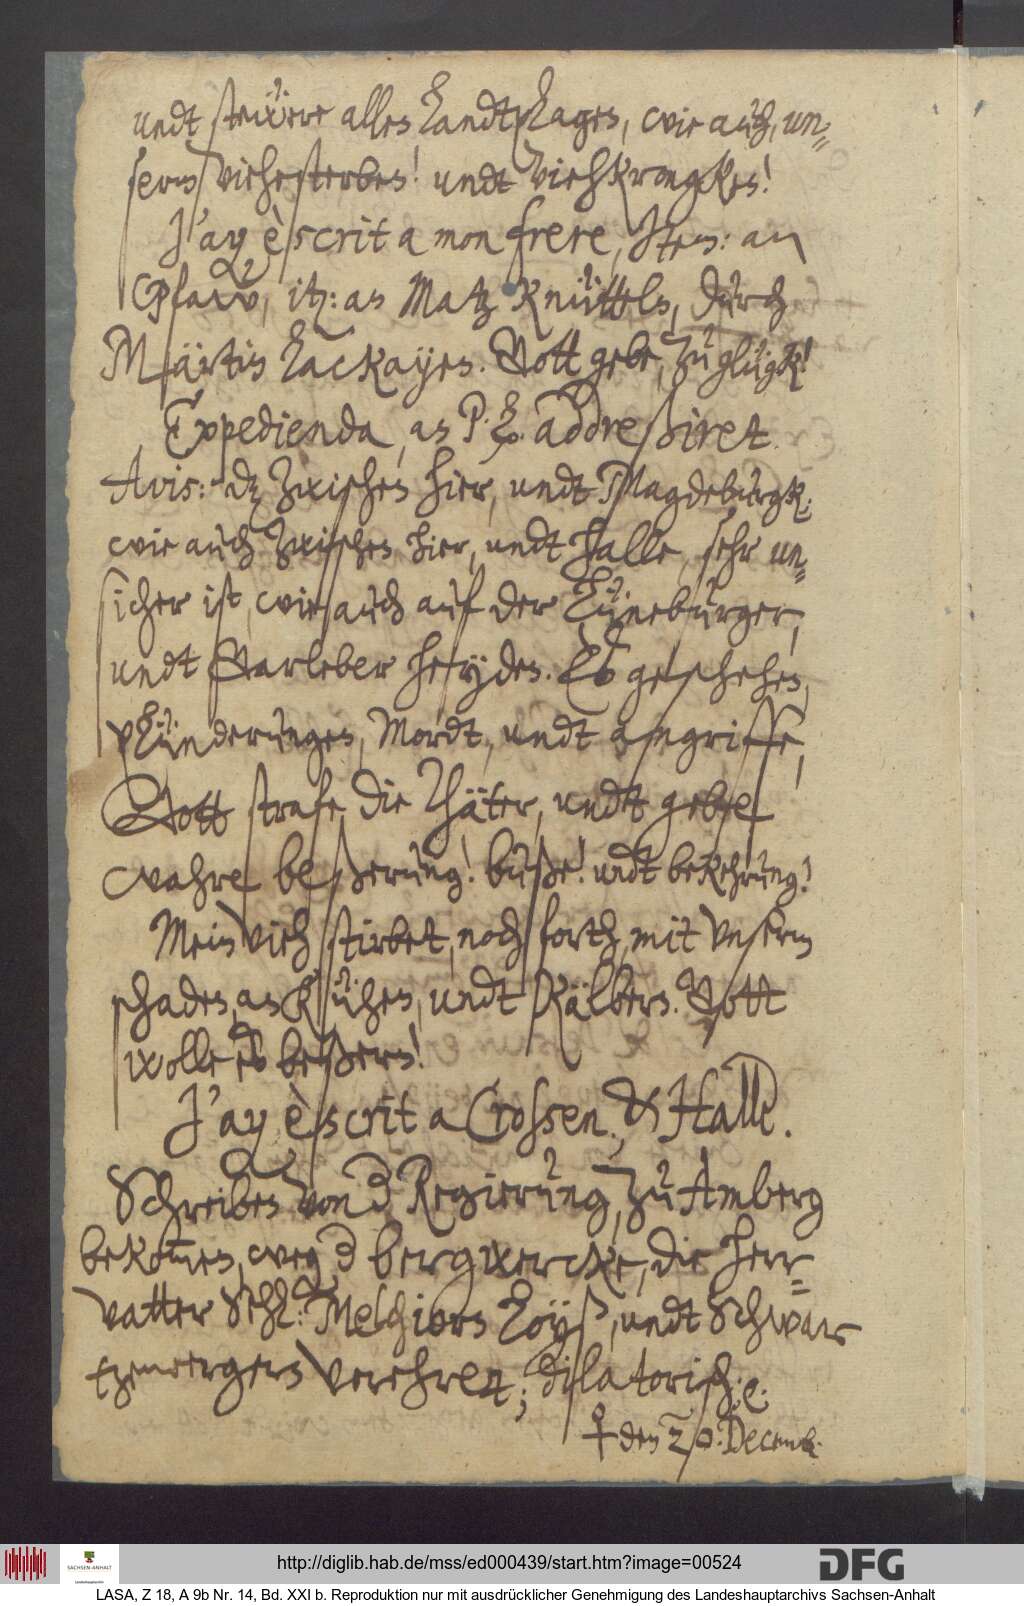 undt steẅere alles Landtplages, wie auch, un=
serm viehesterben! undt Viehkrangken!
J'ay èscrit a mon frere, Item: an
Pfaw, it: an Matz Knüttels, durch
Märtin Lackayen. Gott gebe, zu glügk!
Expedienda, an P. L. addreßiret.
Avis: dz zwischen hier, undt Magdeburgk,
wie auch zwischen hier, undt Halle, sehr un=
sicher ist, wie auch auf der Lüneburger,
undt Garleber heyden. Es geschehen,
plünderungen, Mordt, undt angriffe,
Gott strafe die Thäter, undt gebe
wahre beßerung! buße! undt bekehrung!
Mein vieh stirbet, noch forth, mit unserm
schaden, an Kühen, undt Kälbern. Gott
wolle es beßern!
J'ay èscrit a Crossen, & Halle.
Schreiben von der Regierung, zu Amberg
bekommen, weg der bergwercke, die herr=
vatter Sehl: Melchiorn Loyß, undt Schwar
tzenbergern verehret; dilatorisch: e.
den 20. Decemb:
http://diglib.hab.de/mss/ed000439/start.htm?image=00524
DFG
SACHSEN-ANHALT
LASA, Z 18, A 9b Nr. 14, Bd. XXI b. Reproduktion nur mit ausdrücklicher Genehmigung des Landeshauptarchivs Sachsen-Anhalt